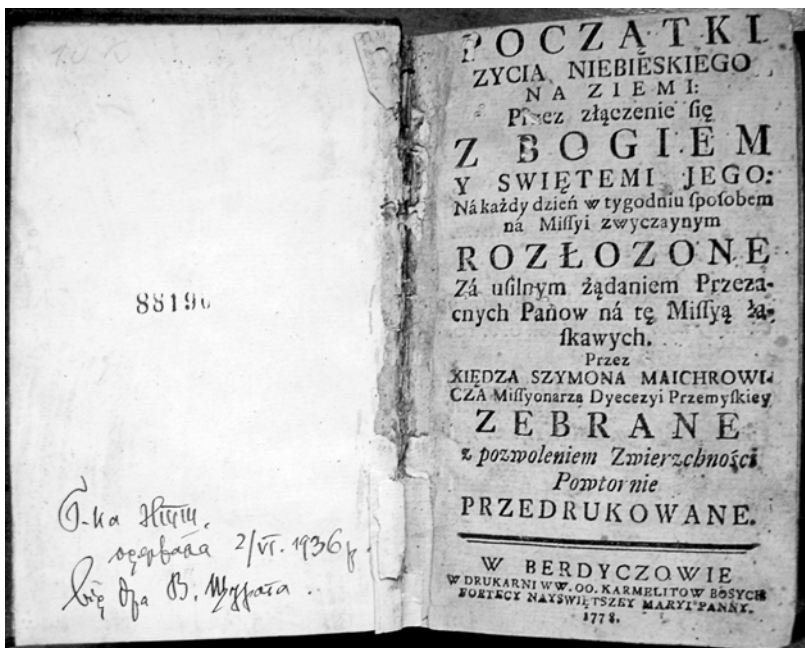 88190
одержала 2/VI. 1936 р.
від дра В. Щурата.
POCZĄTKI
ZYCIA NIEBIESKIEGO
NA ZIEMI:
Przez złączenie ſię
Z BOGIEM
Y SWIĘTEMI JEGO:
Ná każdy dzień w tygodniu ſpoſobem
ná Miſſyi zwyczaynym
ROZŁOZONE
Zá uſilnym żądaniem Przeza-
cnych Panow ná tę Miſſyą łą-
ſkawych.
Przez
XIĘDZA SZYMONA MAICHROWI-
CZA Miſſyonarza Dyecezyi Przemyſkiey
ZEBRANE
z pozwoleniem Zwierzchności
Powtornie
PRZEDRUKOWANE.
W BERDYCZOWIE
W DRUKARNI WW. OO. KARMELITOW BOSYCH
FORTECY NAYSWIĘTSZEY MARYI PANNY.
1778.